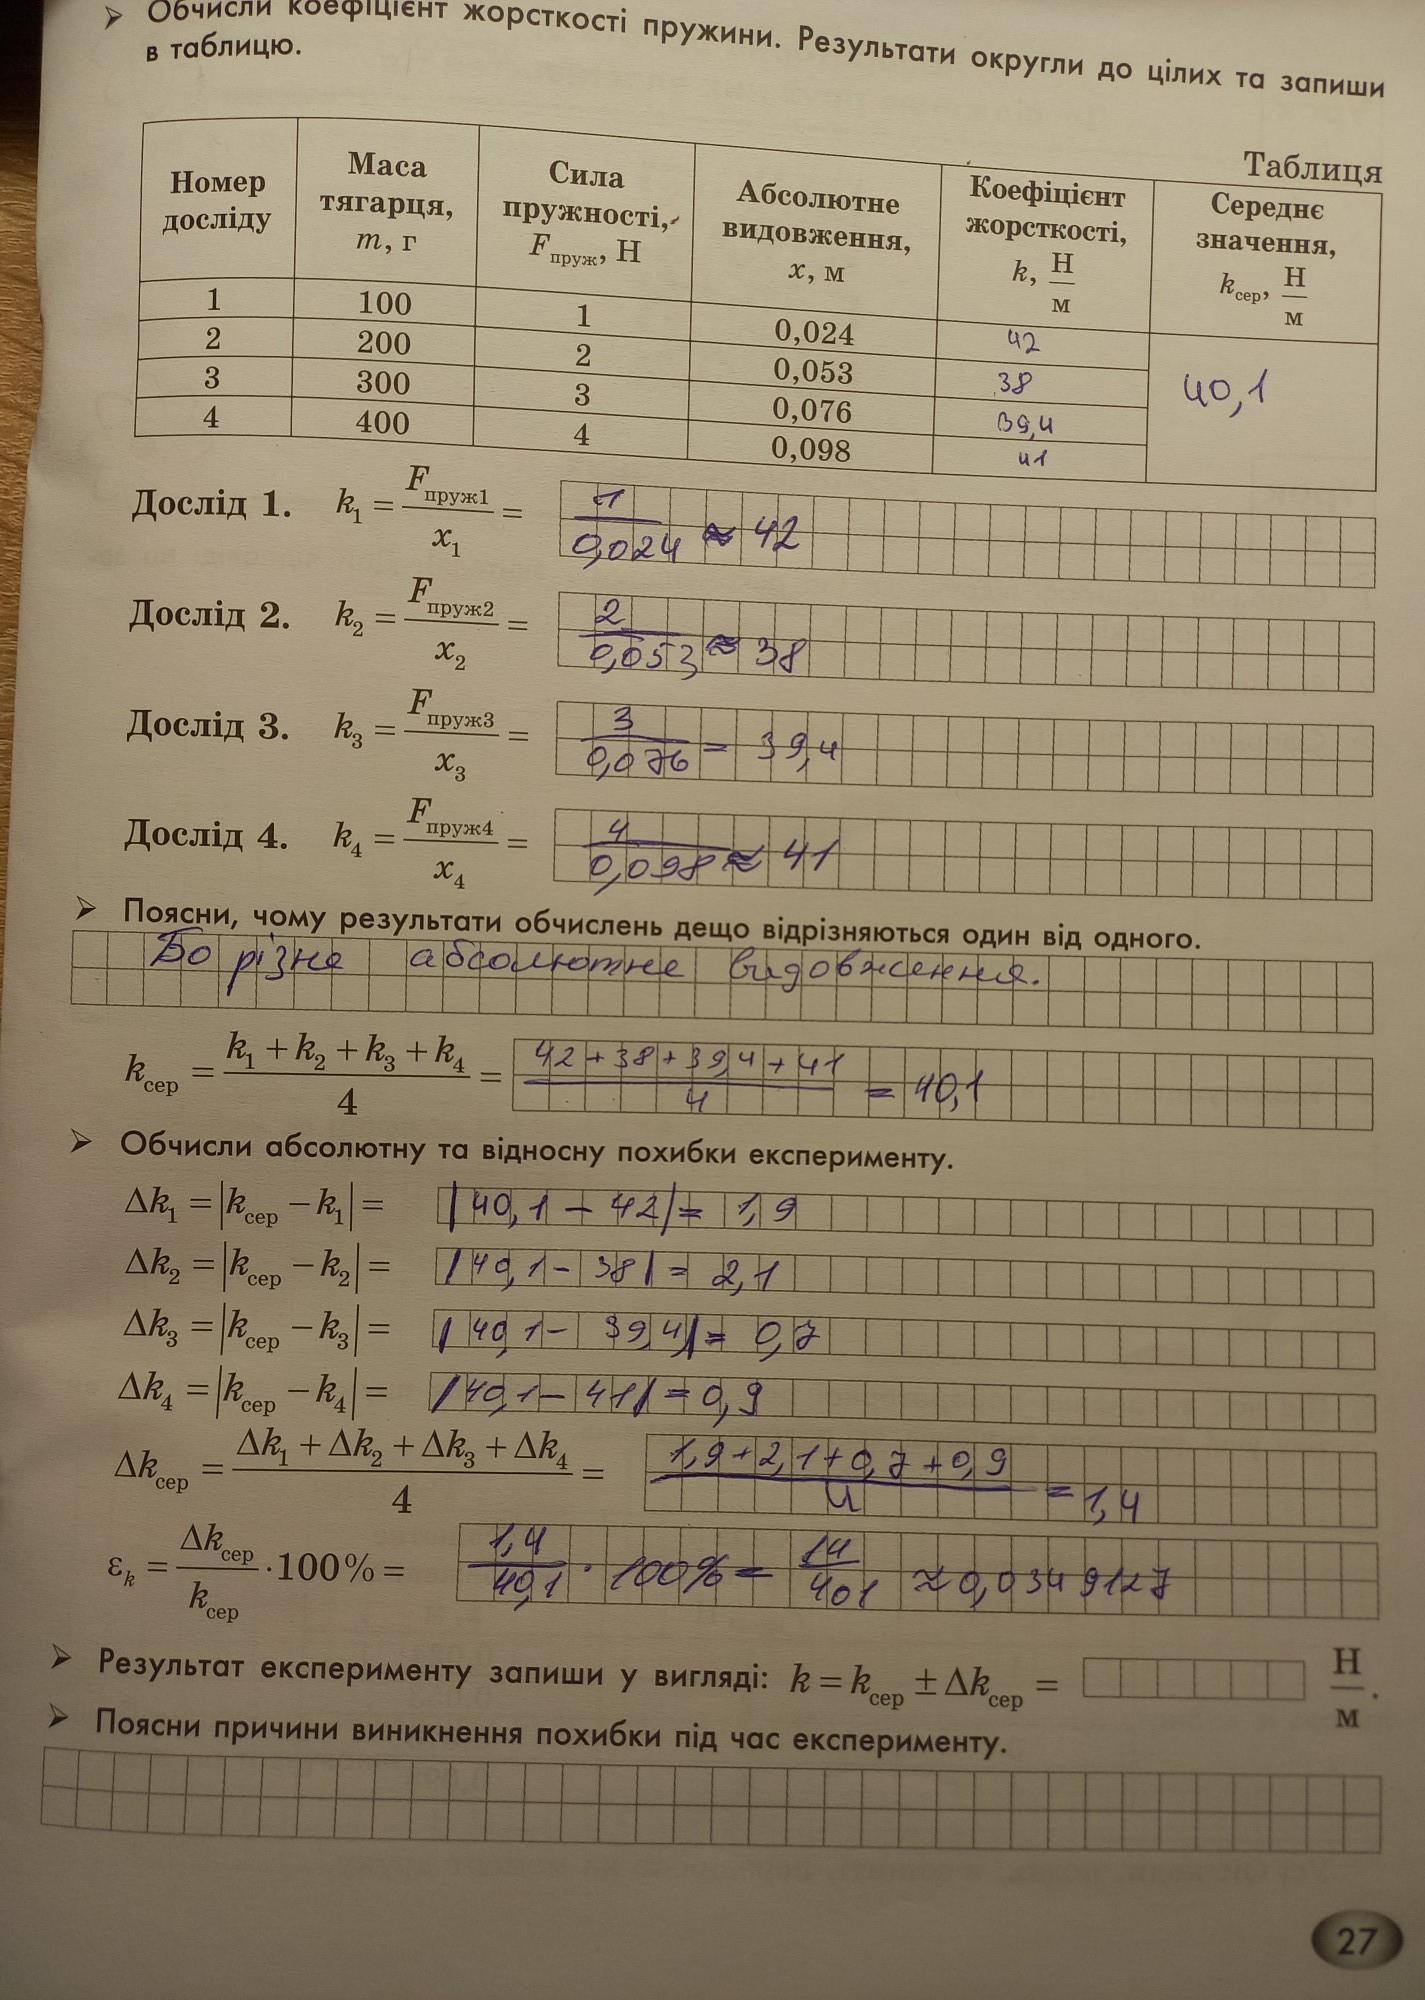 ➤ Обчисли коефіцієнт жорсткості пружини. Результати округли до цілих та запиши
в таблицю.
Таблиця
Номер досліду | Маса тягарця, m, г | Сила пружності, Fпруж, Н | Абсолютне видовження, x, м | Коефіцієнт жорсткості, k, Н/м | Середнє значення, kсер, Н/м
1 | 100 | 1 | 0,024 | 42 | 40,1
2 | 200 | 2 | 0,053 | 38
3 | 300 | 3 | 0,076 | 39,4
4 | 400 | 4 | 0,098 | 41
Дослід 1. k₁ = Fпруж1/x₁ = 1/0,024 ≈ 42
Дослід 2. k₂ = Fпруж2/x₂ = 2/0,053 ≈ 38
Дослід 3. k₃ = Fпруж3/x₃ = 3/0,076 = 39,4
Дослід 4. k₄ = Fпруж4/x₄ = 4/0,098 ≈ 41
➤ Поясни, чому результати обчислень дещо відрізняються один від одного.
Бо різне абсолютне видовження.
kсер = (k₁ + k₂ + k₃ + k₄)/4 = (42 + 38 + 39,4 + 41)/4 = 40,1
➤ Обчисли абсолютну та відносну похибки експерименту.
Δk₁ = |kсер − k₁| = |40,1 − 42| = 1,9
Δk₂ = |kсер − k₂| = |40,1 − 38| = 2,1
Δk₃ = |kсер − k₃| = |40,1 − 39,4| = 0,7
Δk₄ = |kсер − k₄| = |40,1 − 41| = 0,9
Δkсер = (Δk₁ + Δk₂ + Δk₃ + Δk₄)/4 = (1,9 + 2,1 + 0,7 + 0,9)/4 = 1,4
εk = Δkсер/kсер · 100% = 1,4/40,1 · 100% = 14/401 ≈ 0,0349127
➤ Результат експерименту запиши у вигляді: k = kсер ± Δkсер = Н/м.
➤ Поясни причини виникнення похибки під час експерименту.
27